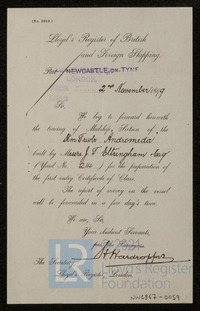 (No. 2012.)
Lloyd's Register of British
and Foreign Shipping,
Port NEWCASTLE-ON-TYNE
LONDON
2nd November 1899
Sir,
We beg to forward herewith
the tracing of Midship Section of the
"Andromeda"
built by Messrs J. T. Eltringham
(Yard No. ) for the preparation of
the first entry Certificate of Class.
The report of survey on the vessel
will be forwarded in a few days time.
We are, Sir,
Your obedient Servants,
The Secretary
Lloyd's Register, London.
Lloyd's Register
Foundation
WWC867-0059